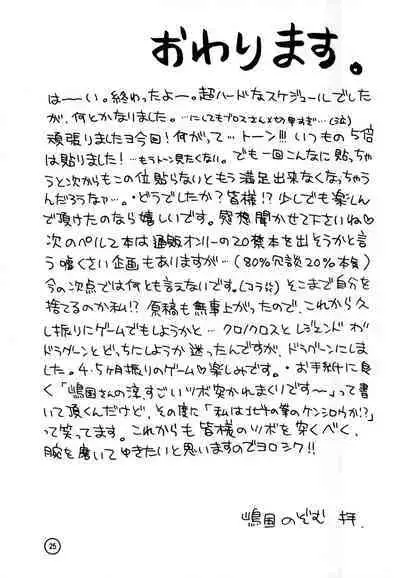 おわります。
はーい。終わったよー。超ハードなスケジュールでした
が、何とかなりました。…にしてもプロスさん〆切早すぎ…(泣)
頑張りましたヨ今回!何がって…トーン!!!いつもの5倍
は貼りました!…もうトーン見たくない。でも一回こんなに貼っちゃ
うと次からもこの位貼らないともう満足出来なくなっちゃう
んだろうなァ…。・どうでしたか?皆様!?少しでも楽しん
で頂けたのなら嬉しいです。感想聞かせて下さいね♡
次のペルソナ本は通販オンリーの20禁本を出そうかと言
う嘘くさい企画もありますが…(80%冗談20%本気)
今の次点では何とも言えないです。(コラ)そこまで自分を
捨てるのか私!?原稿も無事上がったので、これから久
し振りにゲームでもしようかと…クロノクロスとレジェンドオブ
ドラグーンとどっちにしようか迷ったんですが、ドラグーンにしま
した。4・5ヶ月振りのゲーム♡楽しみです。・お手紙に良
く「嶋国さんの涼、すごいツボ突かれまくりです〜」って書
いて頂くんだけど、その度に「私は北斗の拳のケンシロウか!?」
って笑ってます。これからも皆様のツボを突くべく、
腕を磨いてゆきたいと思いますのでヨロシク!!
嶋国のぞむ 拝.
25